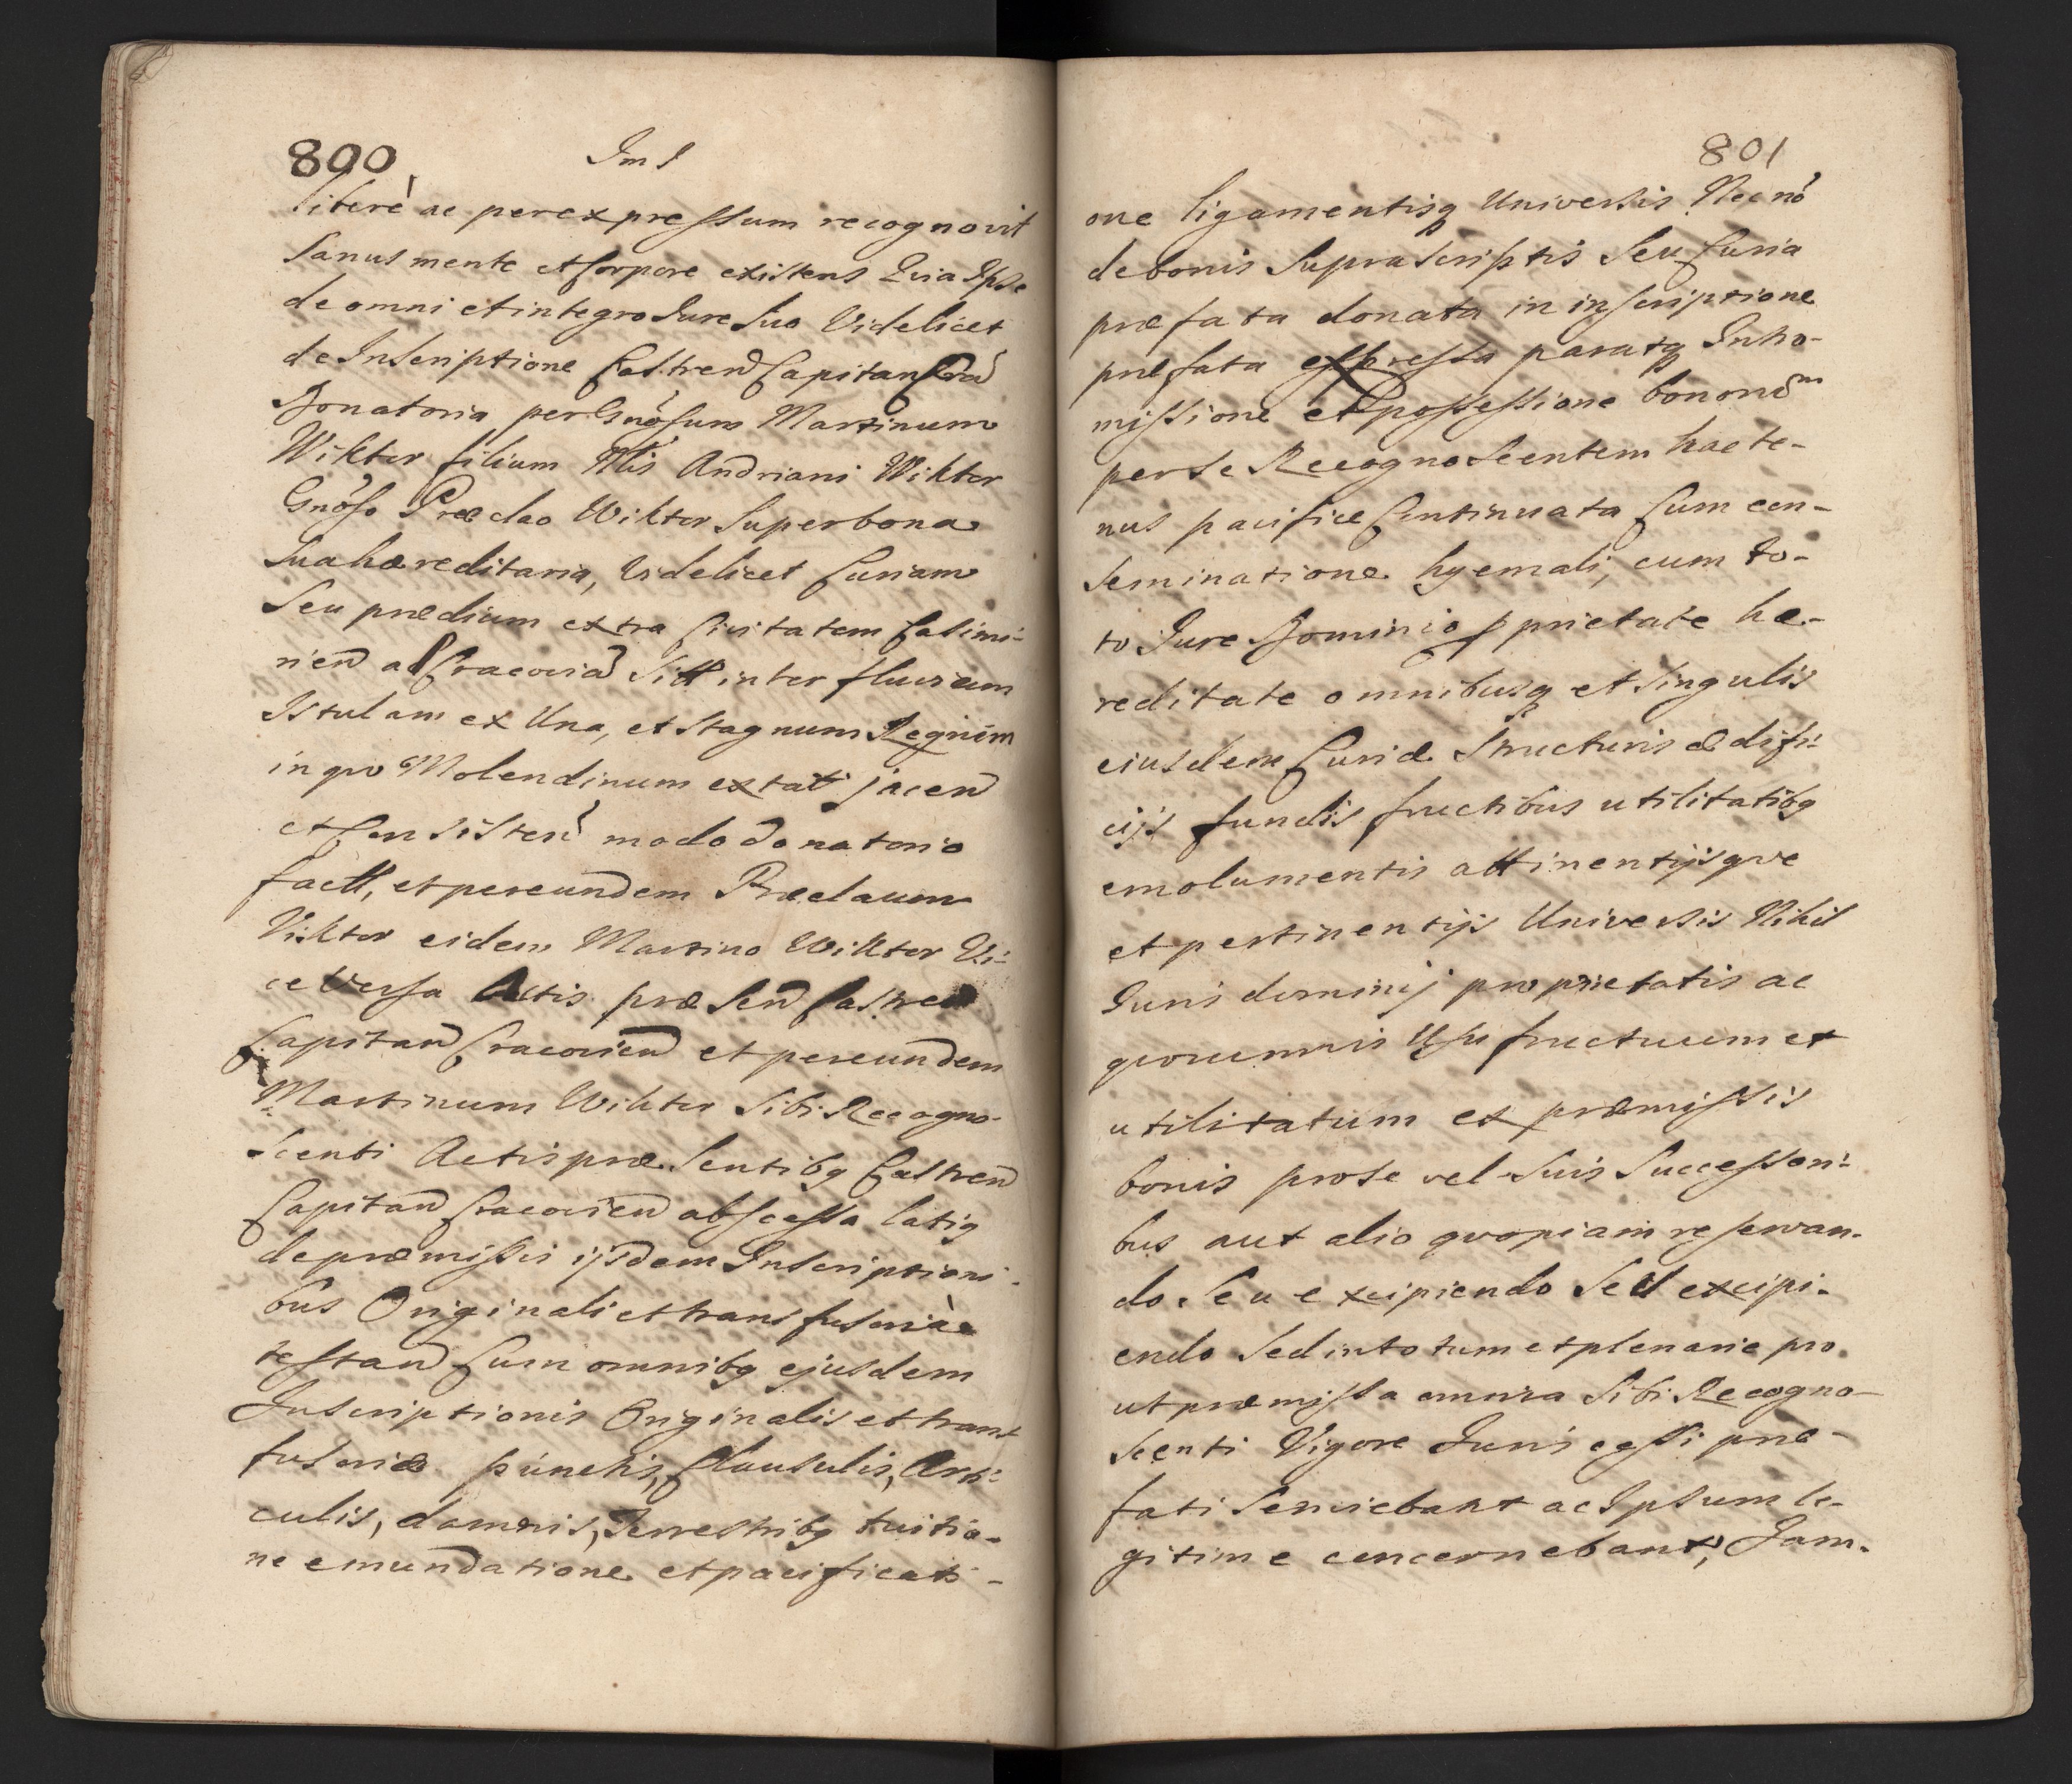 800
Im I
liberè ac per expressum recognovit
Sanus mente et Corpore existens Quia Ipse
de omni et integro Jure Suo Videlicet
de Inscriptione Castren Capitan Cra
Donatoria per Gnosum Martinum
Wikter filium Mis Andriani Wikter
Gnoso Præclao Wikter Super bona
Sua hæreditaria, Videlicet Curiam
Seu prædium extra Civitatem Casimi-
rien ad Cracovia Sitt inter fluvium
Istulam ex Una, et Stagnum Regium
in quo Molendinum extat jacen
et Consisten modo donatorio
factt, et per eundem Præclaum
Vikter eidem Martino Wikter Vi-
ce Versa Actis præsen Castren
Capitan Cracovien et per eundem
Martinum Wikter Sibi Recogno-
scenti Actis præsentibq Castren
Capitan Cracovien abscessa latiq
de præmissis ijsdem Inscriptioni-
bus Originali et transfusoria
testan Cum omnibq ejusdem
Inscriptionis Originalis et trans
fusoriæ punctis, Clausulis, Arti-
culis, damnis, Terrestribq tuitio-
ne emundatione et pacificati-
801
one ligamentisq Universis Nec nō
de bonis Supra Scriptis Seu Curia
præfata donata in inscriptione
præfata expressa parataq Intro-
missione et possessione bonorūm
per Se Recognoscentem hacte-
nus pacifice Continuata Cum con-
seminatione hyemali, cum to-
to Jure Dominio pprietate hæ-
reditate omnibusq et Singulis
eiusdem Curiæ Structuris ædifi-
cijs fundis fructibus utilitatibq
emolumentis attinentijsque
et pertinentijs Universis Nihil
Juris dominij proprietatis ac
quorumvis Usu fructuum et
utilitatum ex præmissis
bonis pro se vel Suis Successori-
bus aut alio quopiam reservan-
do Seu excipiendo Sed excipi-
endo Sed in totum et plenarie pro
ut præmissa omnia Sibi Recogno-
scenti Vigore Juris cessi præ-
fati Serviebant ac Ipsum le-
gitime concernebant, Jam-